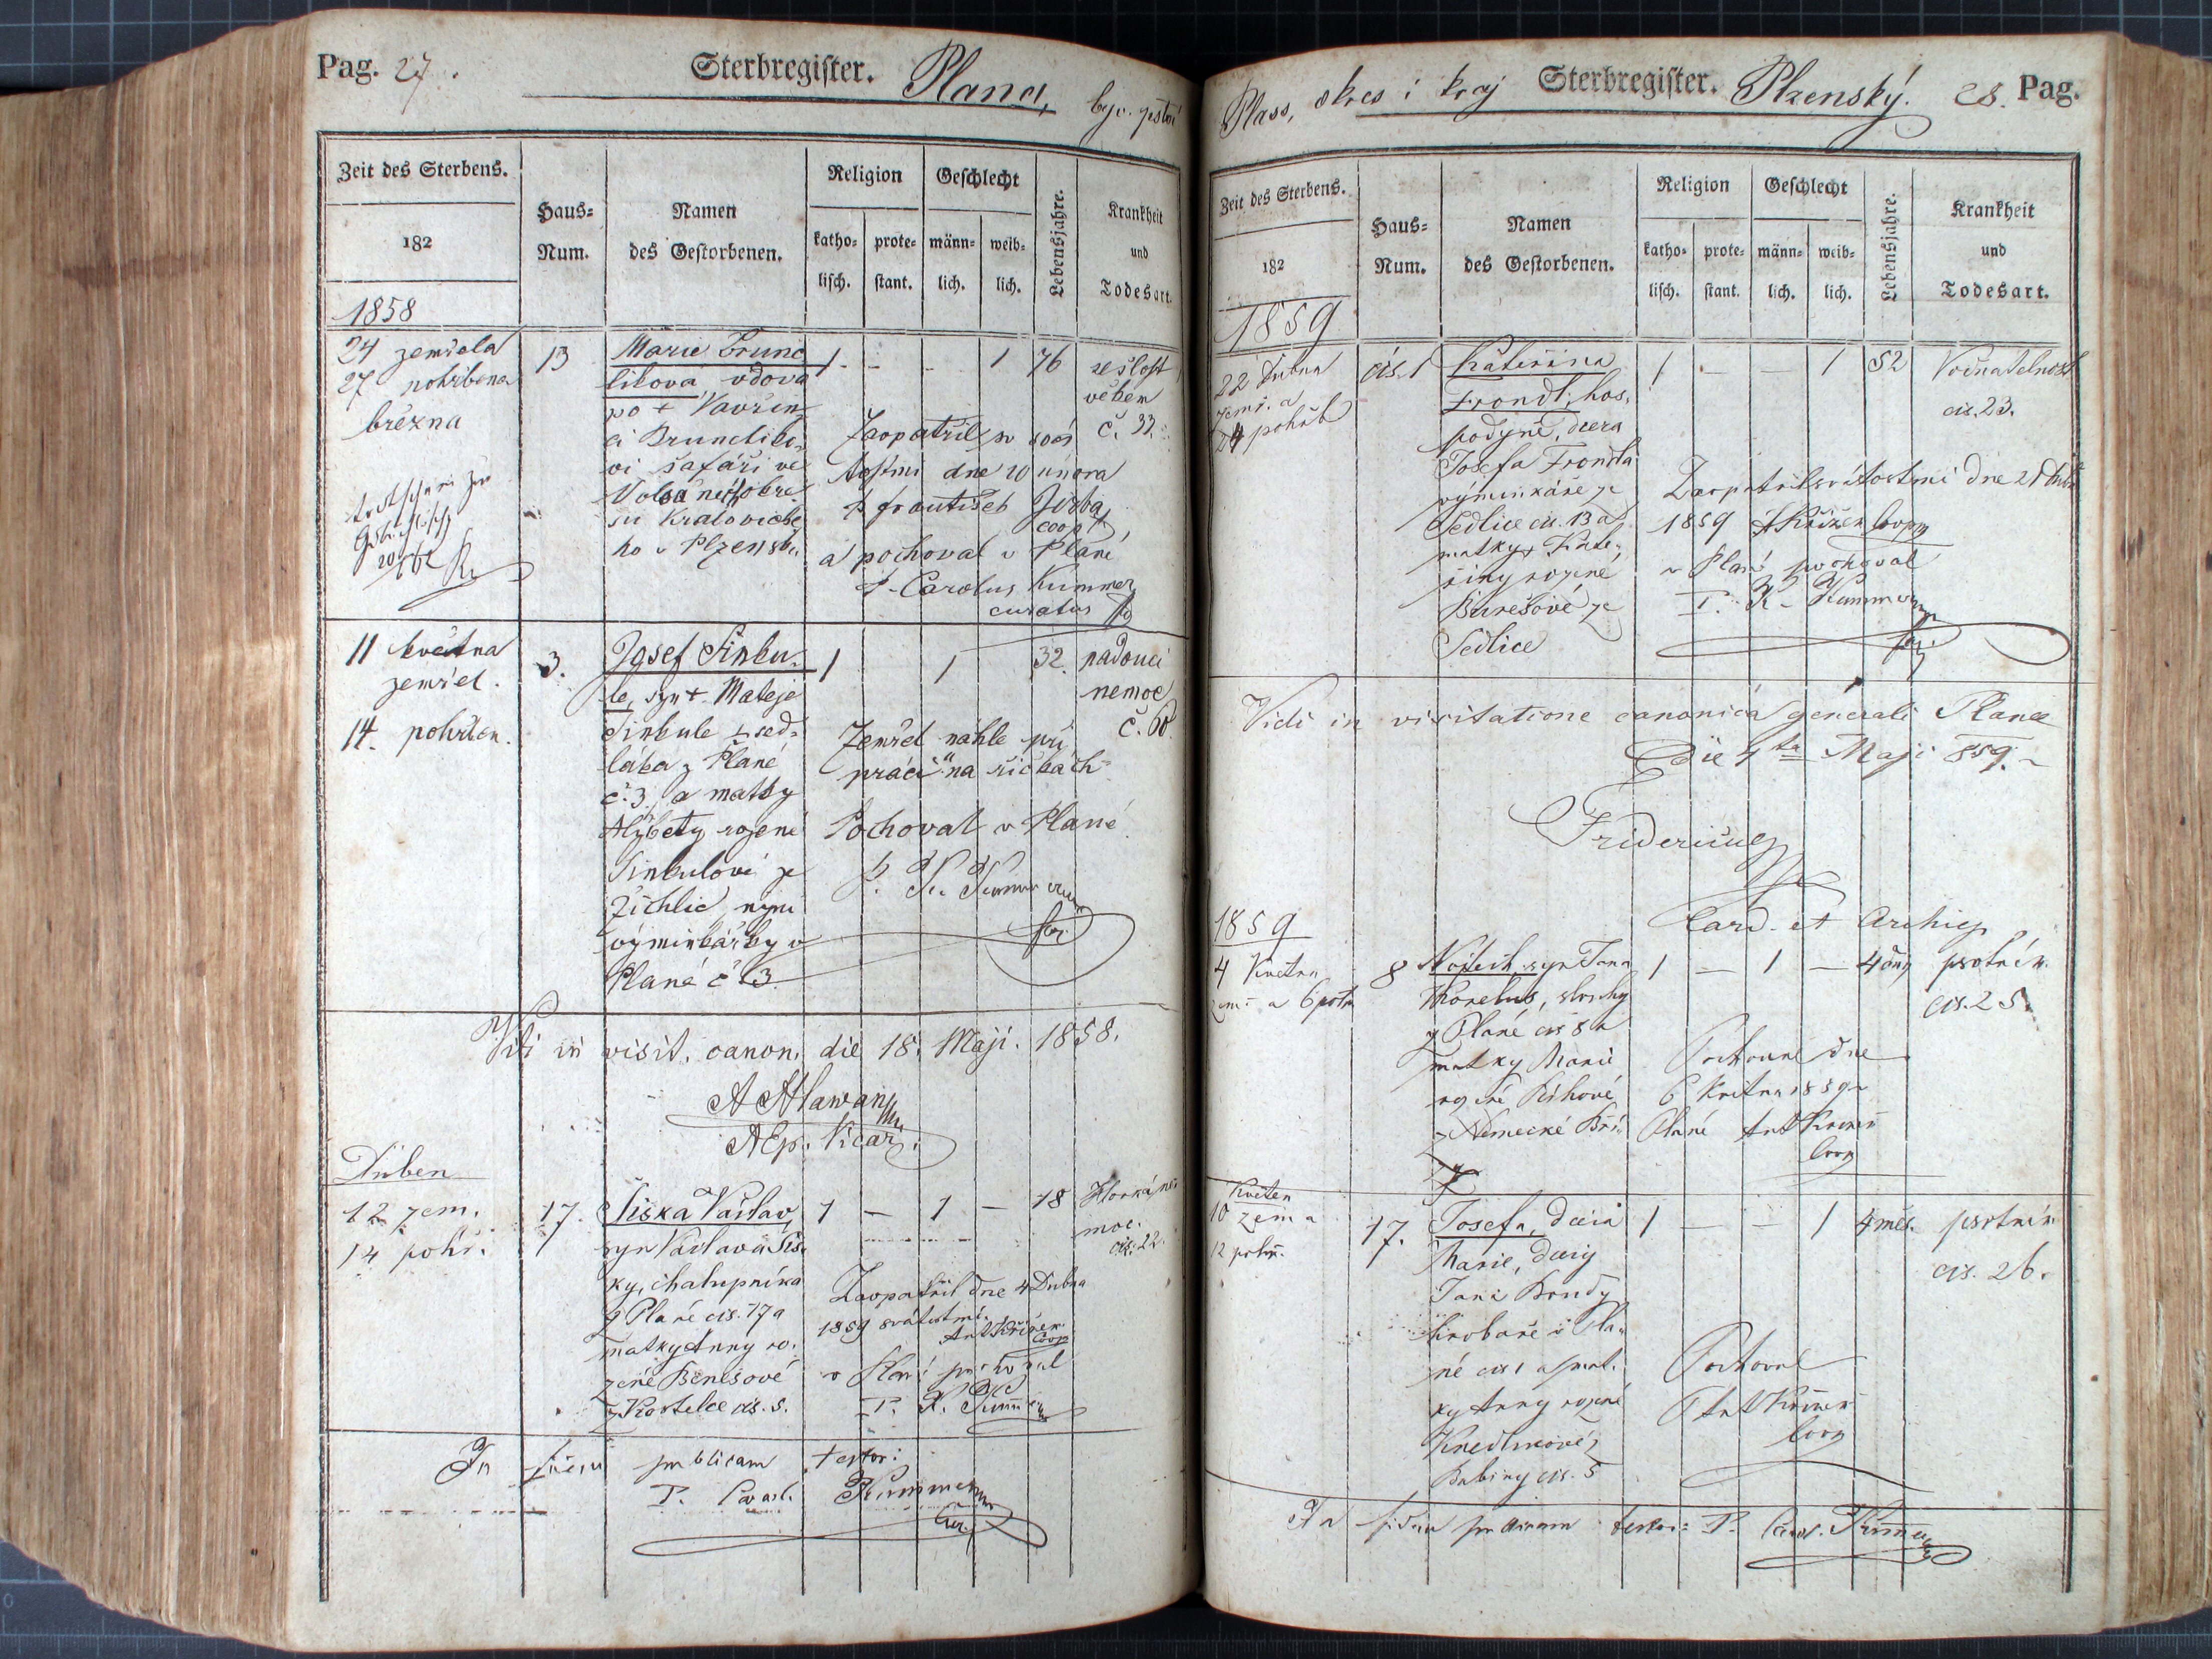 Pag. 27.
Sterbregister. Planá,
Zeit des Sterbens.
182
1858
Haus-
Num.
Namen
des Gestorbenen.
Religion
katho-
lisch.
prote-
stant.
Geschlecht
männ-
lich.
weib-
lich.
Lebensjahre.
Krankheit
und
Todesart.
24 zemřela
27 pohřbena
března
13
Marie Brunc
líková, vdova
po + Vavřin
ci Brunclíko
vi šafáři ve
ho v Plzensku
1 - - - 1 76
sešlost
věkem
č. 33.
Zaopatřil sv
tostmi dne 10 února
P František
coop
a pochoval v Plané
P. Carolus Kummer
curatus
11 května
zemřel.
14. pohřben.
3.
Josef Sinku-
le, syn + Matěje
Sinkule + sed-
láka z Plané
č. 3, a matky
Alžběty rozené
Sinkulové ze
Žichlic nyní
výminkářky v
Plané č 3
1 1 32.
padoucí
nemoc
č. 60
Zemřel náhle při
práci na
Pochoval v Plané
P. K. Kummer
Vidi in visit. canon. die 18. Maji. 1858.
AEp. Vicar.
Duben
12 zem.
14 pohř.
17.
Šiška Václav,
syn Václava Šiš-
ky, chalupníka
z Plané čís. 17 a
matky Anny ro-
zené Benešové
z Kostelce čís. 5.
1 — 1 — 18
Horká ne-
moc.
čís. 22.
Zaopatřil dne 4 Dubna
1859 svátostmi
Ant Křížek
Coop
v Plané pochoval
P. K. Kummer
In fidem publicam testor:
P. Carol. Kummer
Plass, okres i kraj Sterbregister. Plzenský. 28. Pag.
Zeit des Sterbens.
182
1859
Haus-
Num.
Namen
des Gestorbenen.
Religion
katho-
lisch.
prote-
stant.
Geschlecht
männ-
lich.
weib-
lich.
Lebensjahre.
Krankheit
und
Todesart.
22 Dubna
zemř. a
24 pohřb
čís. 1
Kateřina
Frondl, hos-
podyně, dcera
Josefa Frondla
výminkáře ze
Sedlice čís. 13 a
matky + Kate-
řiny rozené
Burešové ze
Sedlice
1 — — 1 52
Vodnatelnost
čís. 23.
Zaopatřil svátostmi dne 21 Dubna
1859 A Křížek Coop
v Plané pochoval
P. K. Kummer
Vidi in visitatione canonica generali Planae
Die 4ta Maji 859.
Fridericus
Card. et Archiep
1859
4 Května
zemř. a 6 pohř
8
Vojtěch, syn Jana
z Plané čís 8 a
matky Marie
z Německé Bří-
zy
1 — 1 — 4 dny
psotník
čís. 25.
Pochoval dne
6 Května 1859 v
Plané Ant Křížek
Coop
Květen
10 zem a
12 pohř.
17.
Josefa, dcera
Marie, dcery
Jana Bondy
né čís 1 a mat-
ky Anny rozené
Babiny čís. 5
1 — — 1 4 měs.
psotník
čís. 26.
Pochoval
P Ant Křížek
Coop
In fidem publicam testor: P. Carol. Kummer